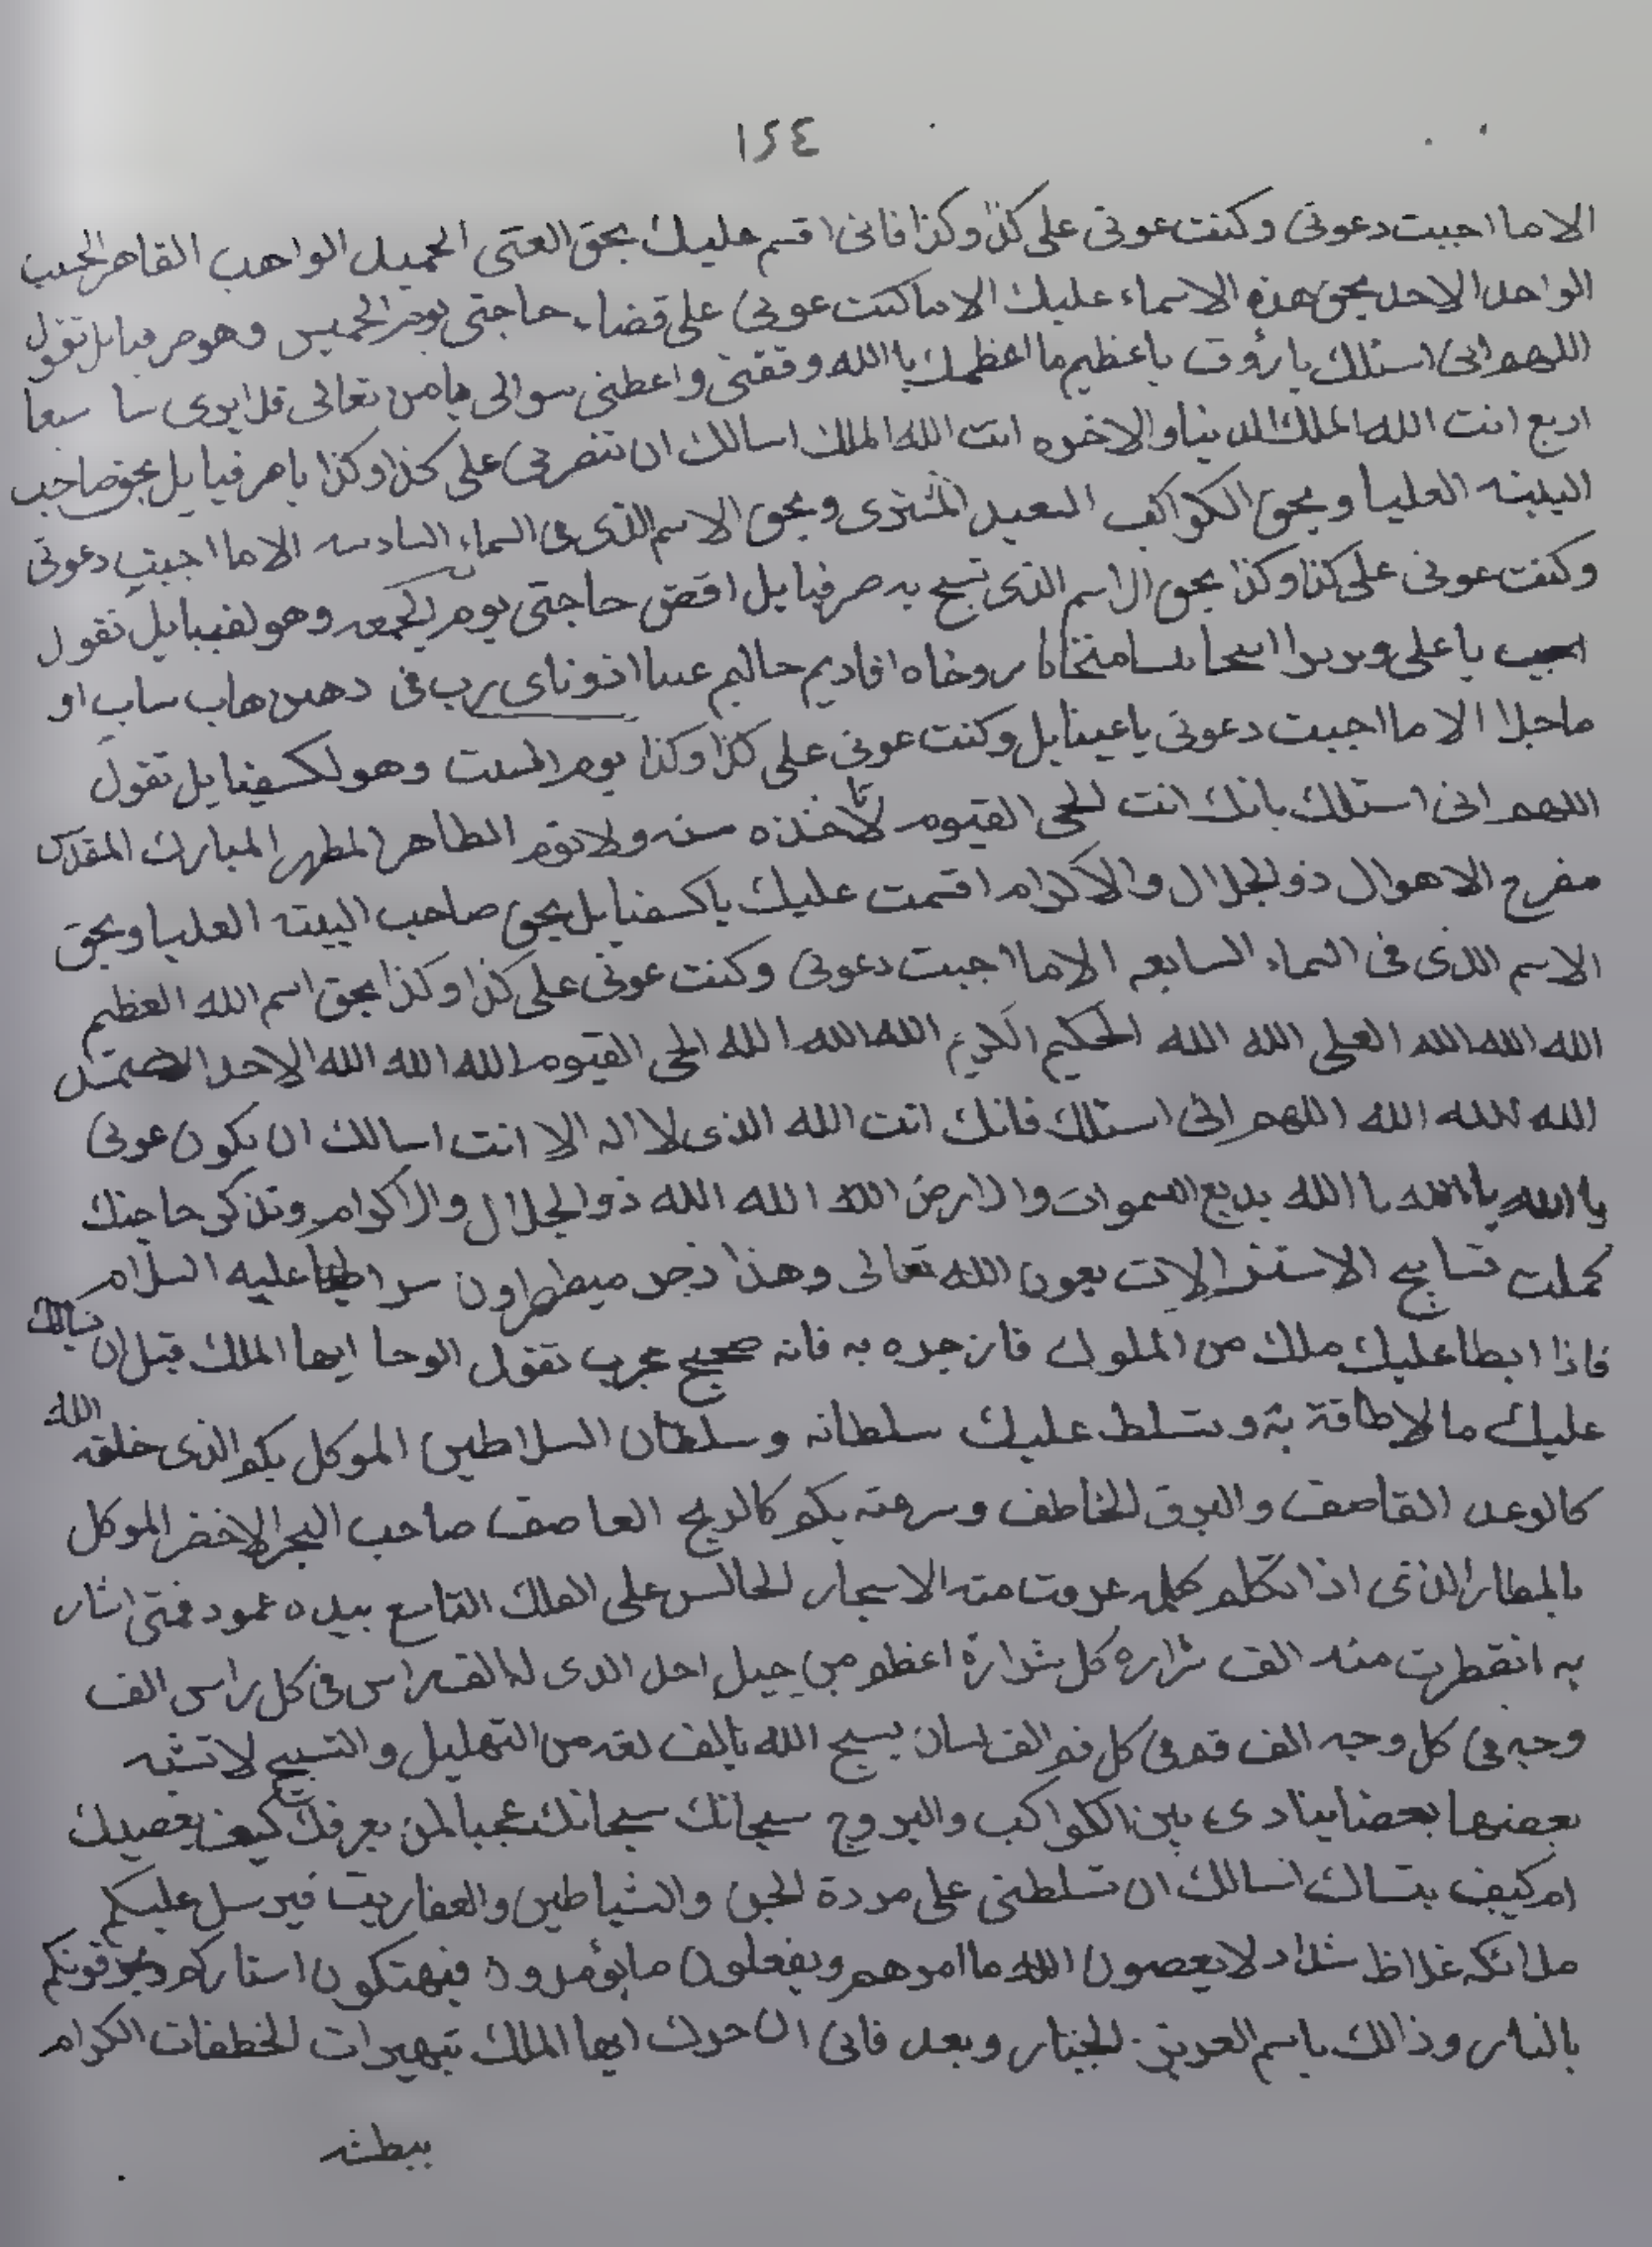 ١٢٤
الاما اجبت دعوتى وكنت عونى على كذا وكذا فانى اقسم عليك بحق العتى الجميل الواهب القاهر
الواحد الاحد بحق هذه الاسماء عليك الاما كنت عونى على قضاء حاجتى يوم الخميس وهو صرفيايل تقول
اللهم انى اسئلك يا رؤف يا عظيم ما اعظمك يا الله وفقنى واعطنى سوالى يا من تعالى قدا يرى
اربع انت الله الملك الدنيا والاخره انت الله الملك اسالك ان تنصرنى على كذا وكذا يا صرفيايل بحق صاحب
البينه العليا وبحق الكواكب السعيد المشترى وبحق الاسم الذى فى السماء السادسه الاما اجبت دعوتى
وكنت عونى على كذا وكذا بحق الاسم الذى تسبح به صرفيايل اقض حاجتى يوم الجمعه وهو تقول
يا على افاديم حاليم اذوناى رب فى هاب ساب او
ماحلا الاما اجبت دعوتى يا عينايل وكنت عونى على كذا وكذا يوم السبت وهو لكسفيايل تقول
اللهم انى اسئلك بانك انت الحى القيوم لا تاخذه سنه ولا نوم الطاهر المطهر المبارك المقدس
مفرج الاهوال ذو الجلال والاكرام اقسمت عليك يا كسفيايل بحق صاحب البيته العليا وبحق
الاسم الذى فى السماء السابعه الاما اجبت دعوتى وكنت عونى على كذا وكذا بحق اسم الله العظيم
الله الله الله العلى الله الله الحكيم الكريم الله الله الله الحى القيوم الله الله الله الاحد الصمد
الله الله الله اللهم انى اسئلك فانك انت الله الذى لا اله الا انت اسالك ان تكون عونى
يا الله يا الله يا الله بديع السموات والارض الله الله الله ذو الجلال والاكرام وتذكر حاجتك
كملت تسابيح الاستنزالات بعون الله تعالى وهذا زجر ميططرون عليه السلام
فاذا ابطا عليك ملك من الملوك فازجره به فانه صحيح مجرب تقول الوحا ايها الملك قبل ان
عليك ما لا طاقة به وتسلط عليك سلطانه وسلطان السلاطين الموكل بكم الذى خلقه الله
كالرعد القاصف والبرق الخاطف وسرعته بكم كالريح العاصف صاحب البحر الاخضر الموكل
بالمطار الذى اذا تكلم كلمه منه الجالس على الفلك التاسع بيده عمود فمتى اشار
به انقطرت منه الف شراره كل شرارة اعظم من جبل احد الذى له الف راس فى كل راس الف
وجه فى كل وجه الف فم فى كل فم الف لسان يسبح الله بالف لغه من التهليل والتسبيح لا تشبه
بعضها بعضا ينادى بين الكواكب والبروج سبحانك سبحانك عجبا لمن يعرفك كيف يعصيك
ام كيف اسالك ان تسلطنى على مردة الجن والشياطين والعفاريت فيرسل عليكم
ملائكه غلاظ شداد لا يعصون الله ما امرهم ويفعلون ما يؤمرون فيهتكون استاركم ويحرقونكم
بالنار وذالك باسم العزيز الجبار وبعد فانى ايها الملك الخطفات الكرام
ببطشه